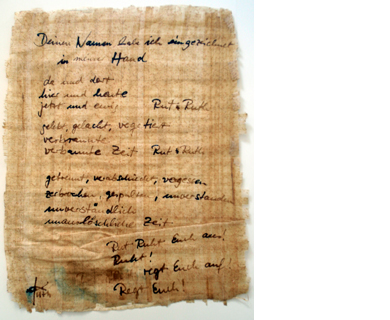 Deinen Namen habe ich eingezeichnet
in meine Hand
da und dort
hier und heute
jetzt und Rut & Ruth
gelebt, gelacht, vegetiert
verbrannte
verbannte Zeit Rut & Ruth
getrennt, verabschiedet, vergessen
zerbrochen, gespalten, unverstanden
unverständlich
unauslöschliche Zeit
Rut Ruht Euch aus!
Ruht!
regt Euch auf!
Regt Euch!